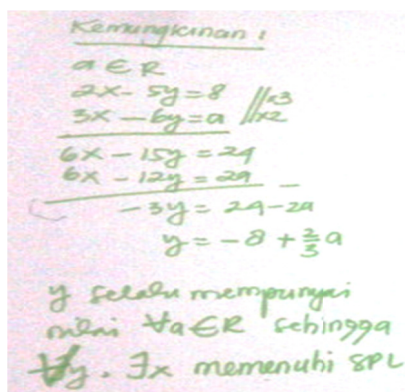 Kemungkinan :
a ∈ R
2x - 5y = 8 //x3
3x - 6y = a //x2
6x - 15y = 24
6x - 12y = 2a -
-3y = 24 - 2a
y = -8 + 2/3 a
y selalu mempunyai
nilai ∀a ∈ R sehingga
∀y. ∃x memenuhi SPL